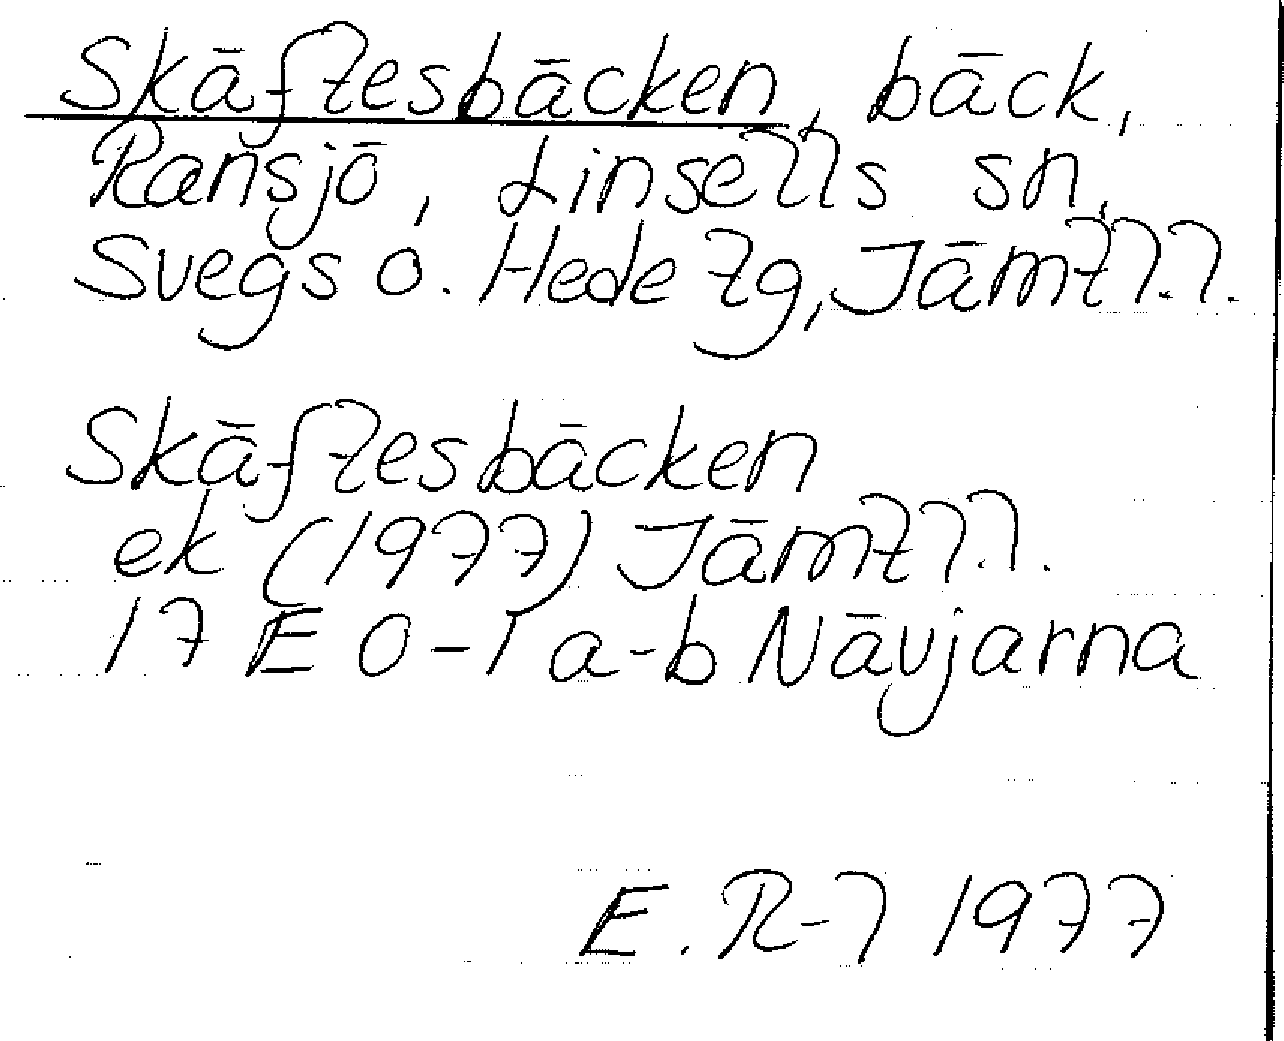 Skäftesbäcken, bäck,
Ransjö, Linsells sn,
Svegs o. Hede tg, Jämtl.l.
Skäftesbäcken
ek (1977) Jämtl.l.
17 E 0-1 a-b Nävjarna
E. R-l 1977